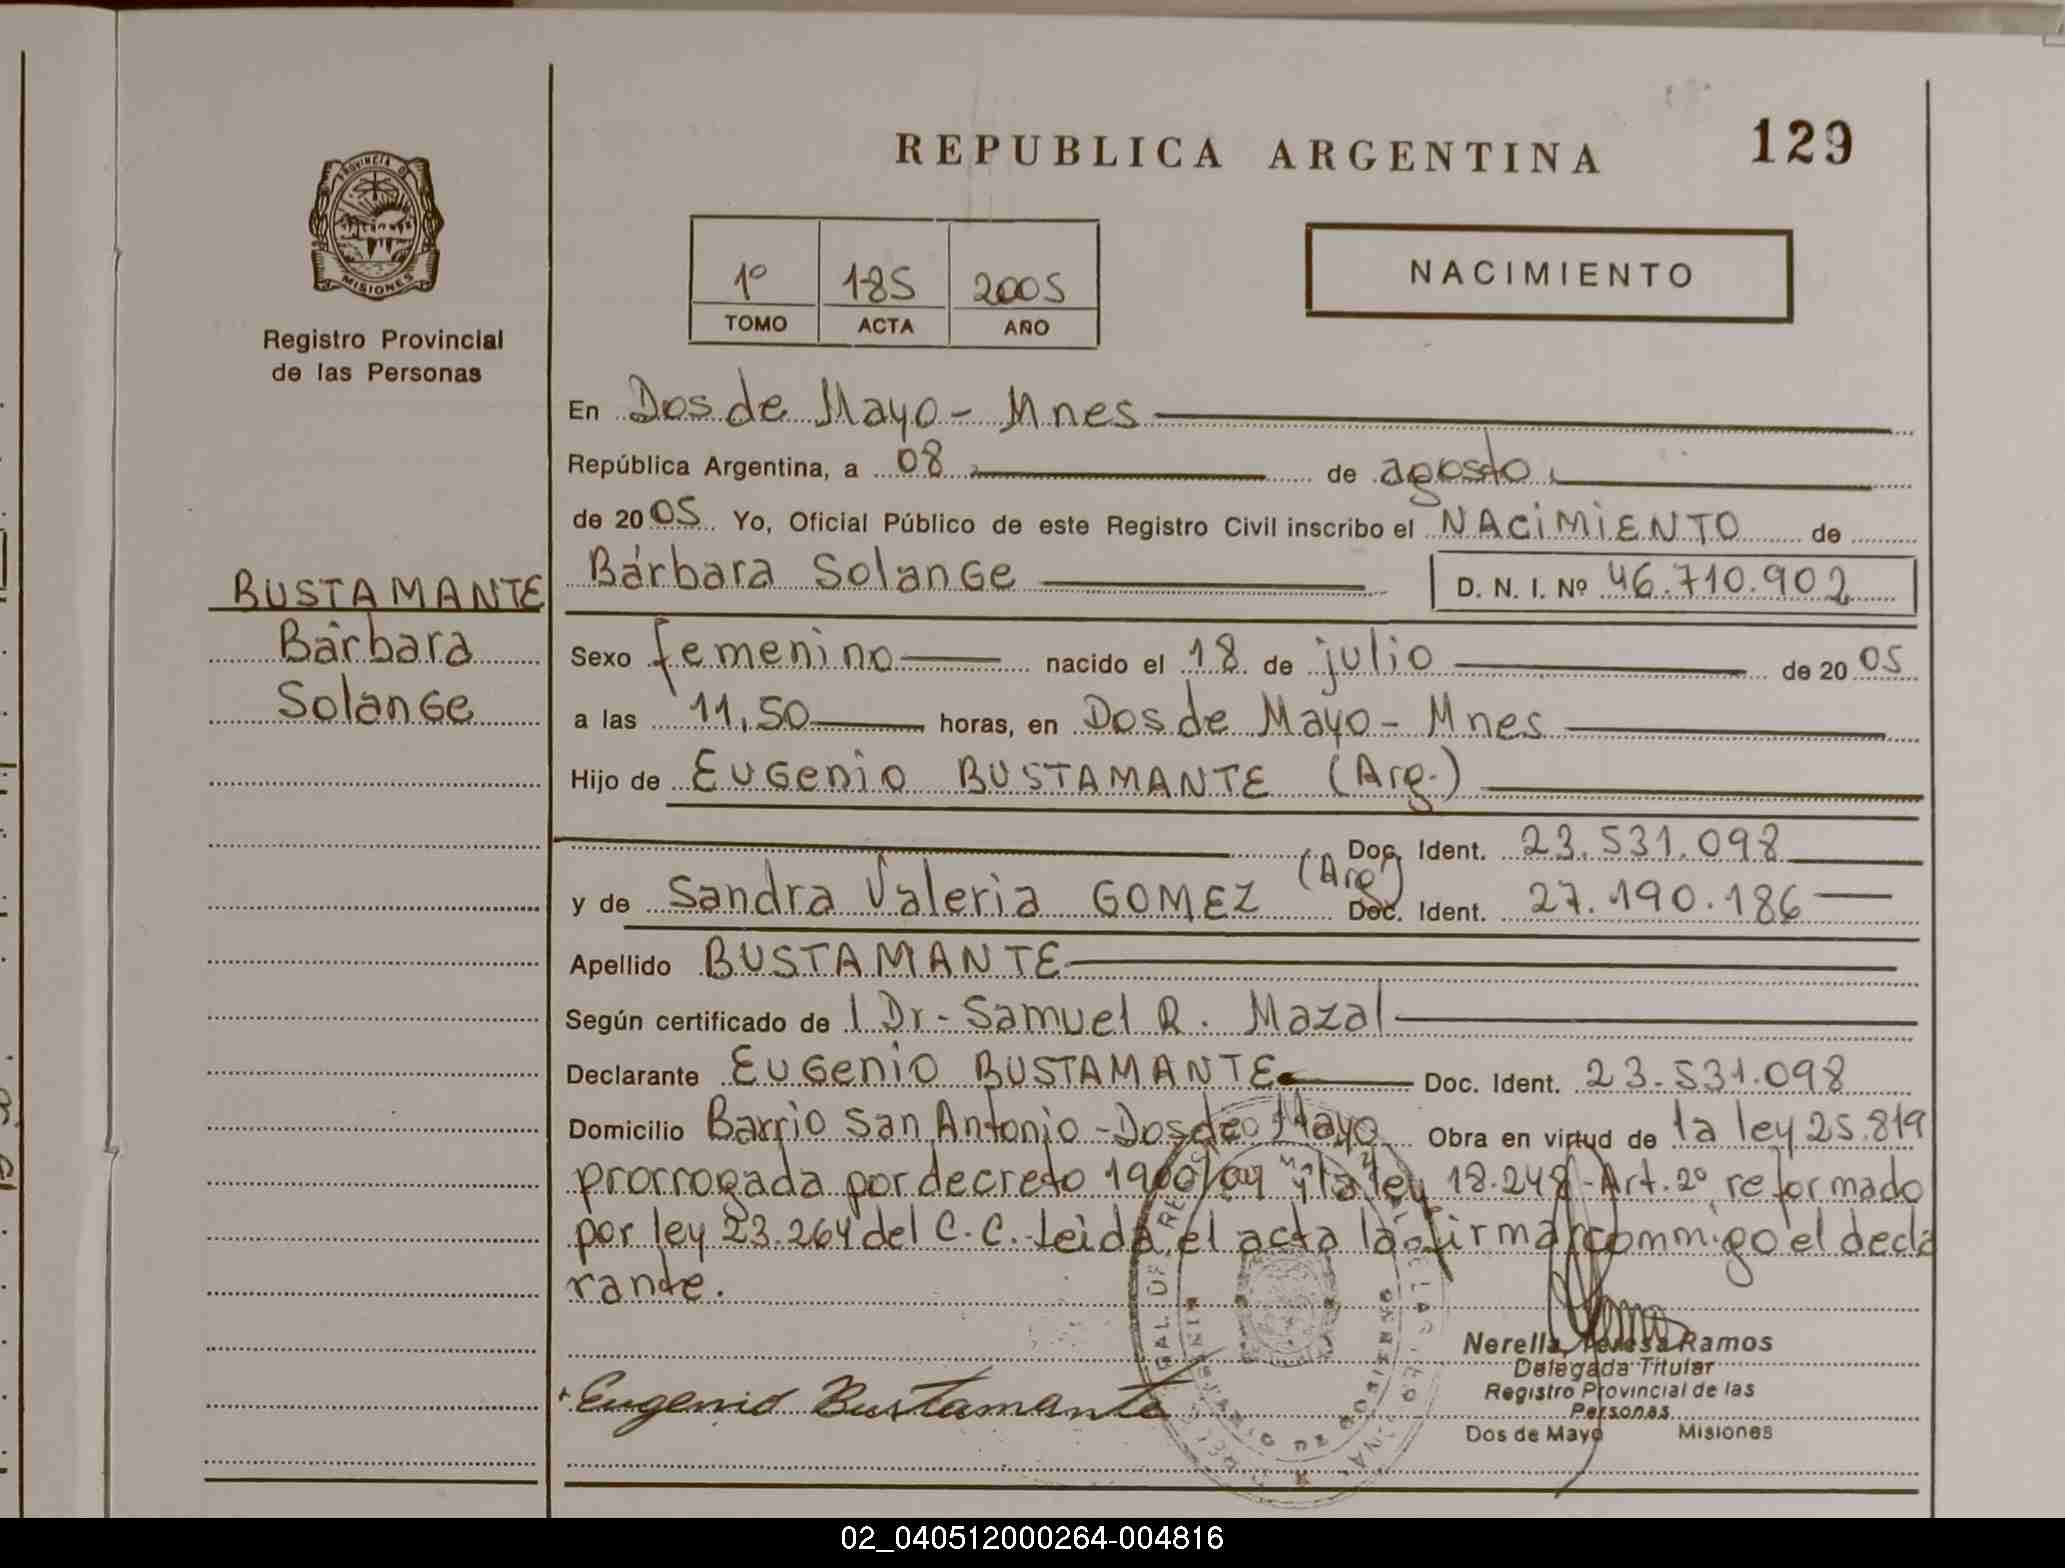 REPUBLICA ARGENTINA 129
PROVINCIA D
MISIONES
Registro Provincial
de las Personas
1º 185 2005
TOMO ACTA AÑO
NACIMIENTO
En Dos de Mayo - Mnes
República Argentina, a 08 de agosto
de 2005 Yo, Oficial Público de este Registro Civil inscribo el NACIMIENTO de
BUSTAMANTE
Bárbara
Solange
Bárbara Solange D. N. I. Nº 46.710.902
Sexo femenino nacido el 18 de julio de 2005
a las 11,50 horas, en Dos de Mayo - Mnes
Hijo de Eugenio BUSTAMANTE (Arg.)
Doc. Ident. 23.531.098
y de Sandra Valeria GOMEZ (Arg) Doc. Ident. 27.190.186
Apellido BUSTAMANTE
Según certificado de l Dr - Samuel R. Mazal
Declarante Eugenio BUSTAMANTE Doc. Ident. 23.531.098
Domicilio Barrio San Antonio - Dos de Mayo Obra en virtud de la ley 25.819
prorrogada por decreto y la ley 18.248 - Art. 2º reformado
por ley 23.264 del C.C. Leida el acta la firma commigo el decla
rante.
Eugenio Bustamante
Nerella Teresa Ramos
Delegada Titular
Registro Provincial de las
Personas
Dos de Mayo Misiones
02_040512000264-004816